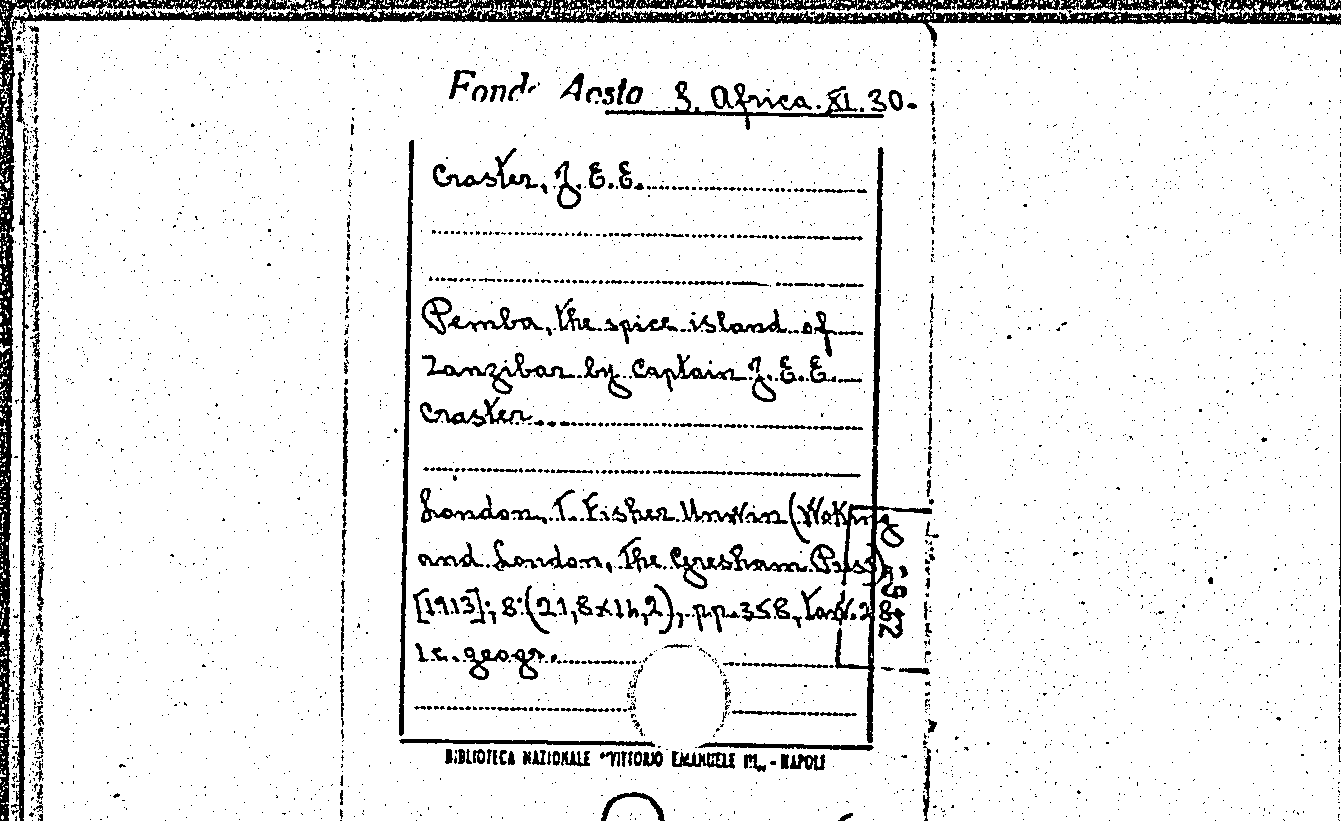 Fondo Aosta S. Africa. XI. 30.
Craster, J. E. E.
Pemba, the spice island of
Zanzibar by Captain J. E. E.
Craster...
London, T. Fisher Unwin (Woking
and London, The Gresham Press),
[1913]; 8° (21,8x14,2), pp. 358, tav. 2
1 c. geogr.
BIBLIOTECA NAZIONALE "VITTORIO EMANUELE III" - NAPOLI